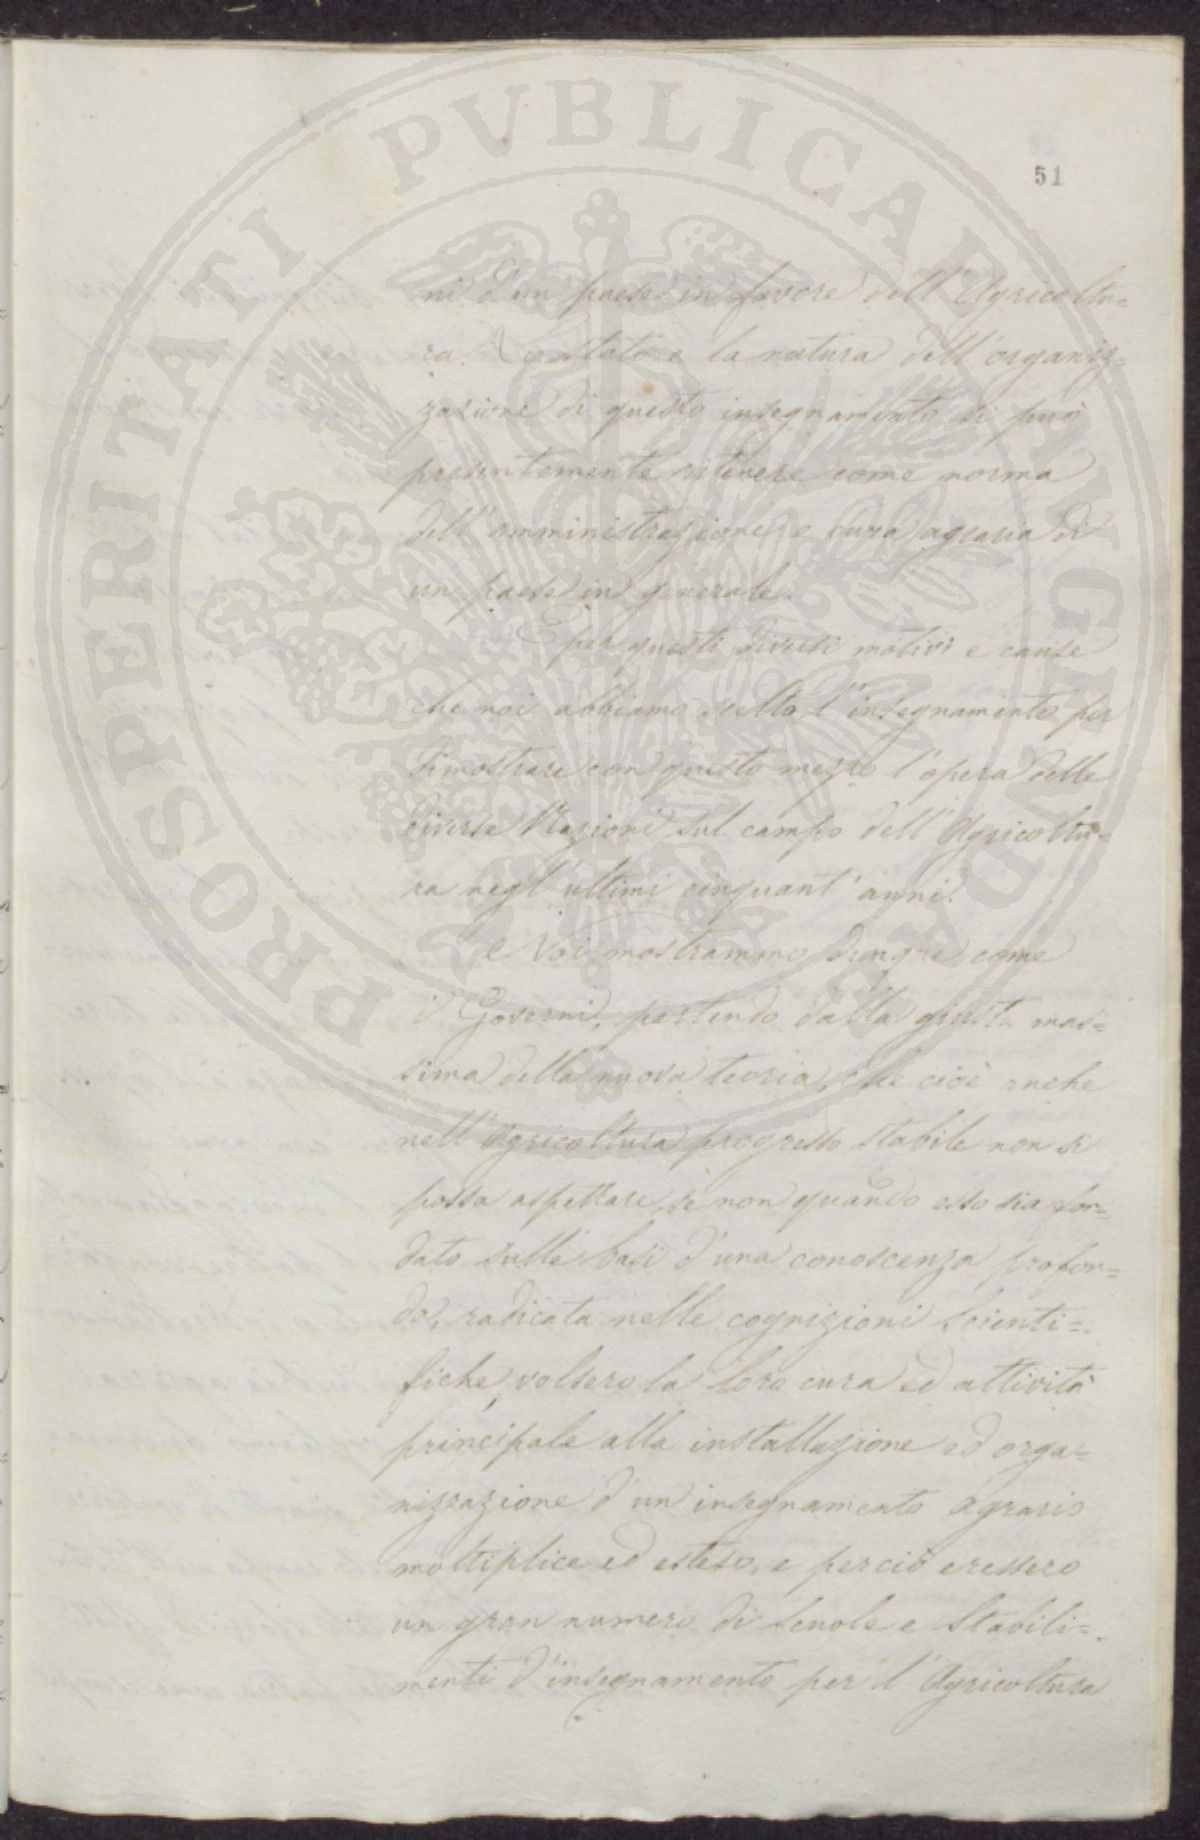 51
ni d'un paese in favore dell'Agricoltu=
ra. Lo stato e la natura dell'organiz=
zazione di questo insegnamento si può
presentemente ritenere come norma
dell'amministrazione e cura agraria di
un paese in generale.
E per questi diversi motivi e cause
che noi abbiamo scelto l'insegnamento per
dimostrare con questo mezzo l'opera delle
diverse Nazioni sul campo dell'Agricoltu=
ra negl'ultimi cinquant'anni.
Noi mostrammo dunque come
i Governi, partendo dalla giusta mas=
sima della nuova teoria, che cioè anche
nell'Agricoltura progresso stabile non si
possa aspettare se non quando esso sia fon=
dato sulle basi d'una conoscenza profon=
da, radicata nelle cognizioni scienti=
fiche, volsero la loro cura ed attività
principale alla installazione ed orga=
nizzazione d'un insegnamento agrario
moltiplice ed esteso, e perciò eressero
un gran numero di scuole e stabili=
menti d'insegnamento per l'Agricoltura
PROSPERITATI PUBLICAE AUGENDAE